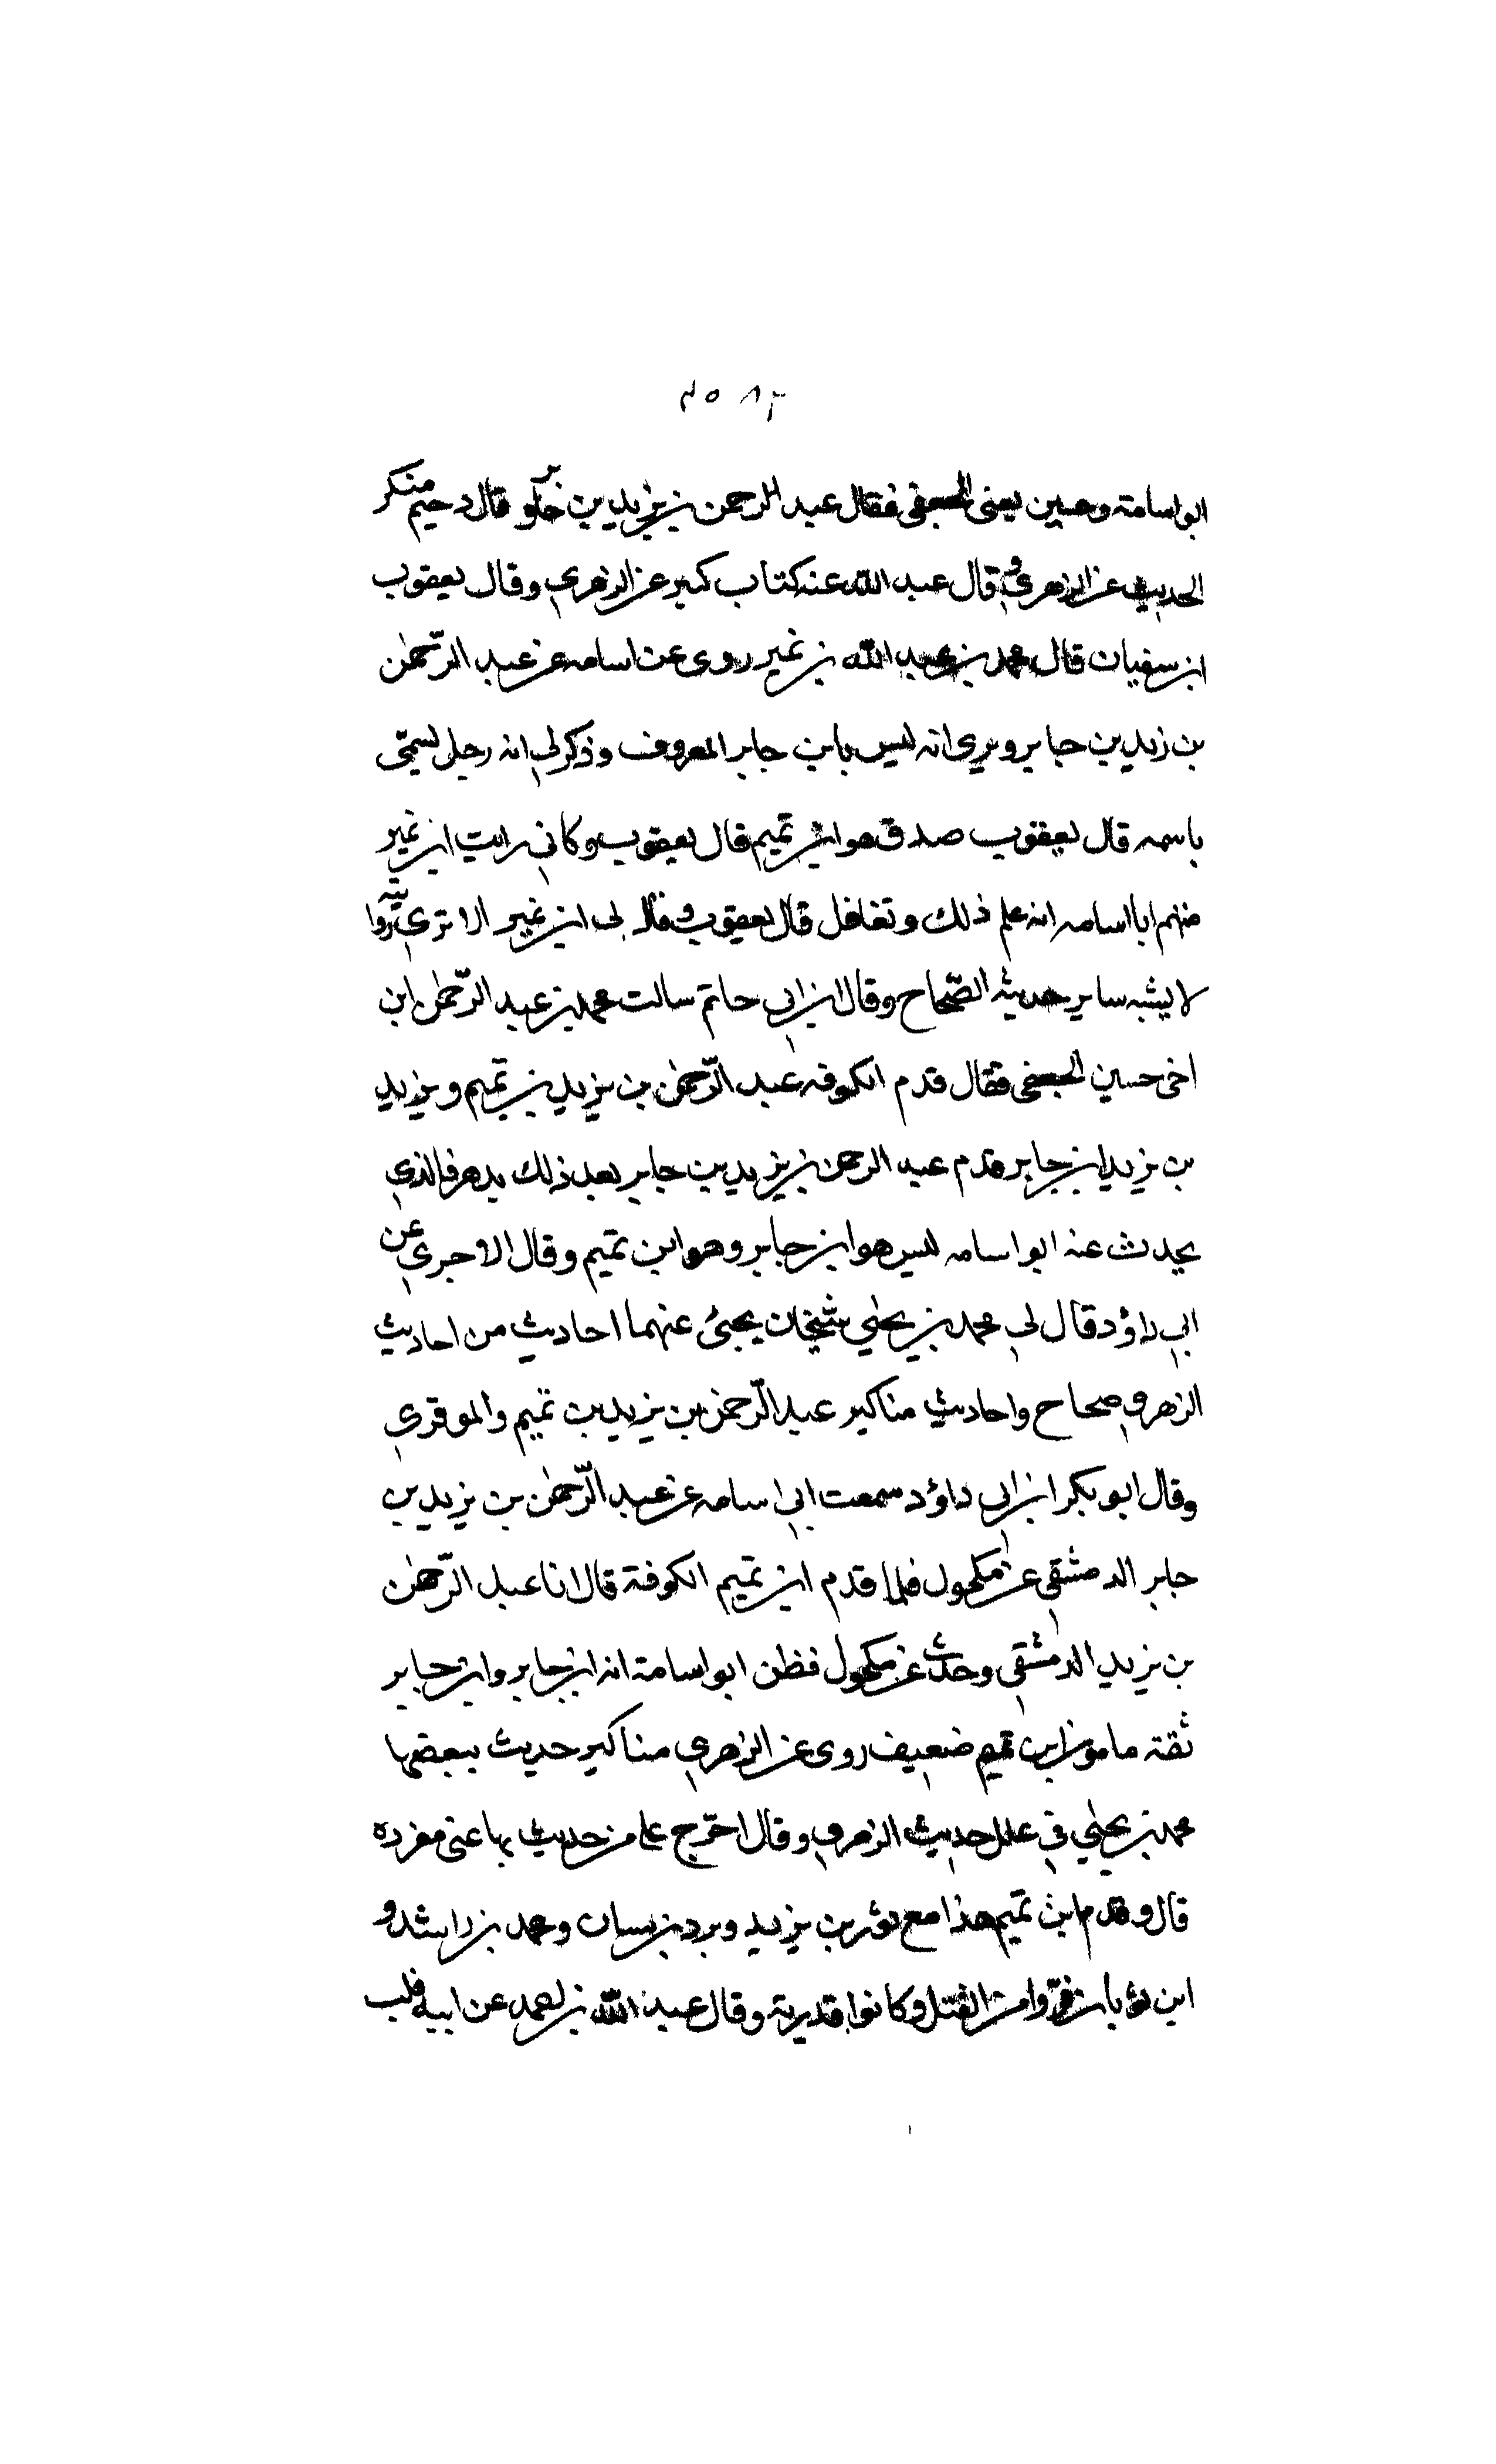 ابو اسامة وحسين يعنى الجعفى فقال عبد الرحمن بن يزيد بن جابر و قال دحيم منكر
الحديث عن الزهرى و قال عبد الله عنه كتاب كبير عن الزهرى وقال يعقوب
ابن سفيان قال محمد بن عبد الله بن نمير روى عن اسامه عن عبد الرّحمٰن
بن زيد بن جابر ويرى انه ليس بابن جابر المعروف وذكر لى انه رجل يسمّى
باسمه قال يعقوب صدق هو ابن تميم قال يعقوب وكانى رايت ابن نمير
يتهم ابا اسامه انه علم ذلك وتغافل قال يعقوب وقال لى ابن نمير الا ترى روايته
لا يشبه ساير حديثه الصّحاح وقال ابن ابى حاتم سالت محمد بن عبد الرّحمٰن ابن
اخى حسين الجعفى فقال قدم الكوفه عبد الرّحمٰن بن يزيد بن تميم ويزيد
بن يزيد ابن جابر قدم عبد الرحمن بن يزيد بن جابر بعد ذلك بدهر فالذى
يحدث عنه ابو اسامه ليس هو ابن جابر وهو ابن تميم وقال الاجرى عن
ابى داؤد قال لى محمد بن يحيٰى شيخان يجىٔ عنهما احاديث من احاديث
الزهرى صحاح واحاديث مناكير عبد الرّحمٰن بن يزيد بن تميم والموقرى
وقال ابو بكر ابن ابى داؤد سمعت ابى اسامه عن عبد الرّحمٰن بن يزيد بن
جابر الدمشقى عن مكحول فلما قدم ابن تميم الكوفة قال انا عبد الرّحمٰن
بن يزيد الدمشقى وحدث عن مكحول فظن ابو اسامة انه ابن جابر وابن جابر
ثقة مامون ابن تميم ضعيف روى عن الزهرى مناكير حديث ببعضها
محمد بن يحيٰى فى علل حديث الزهرى وقال احرّج على من حديث بها عنى مفرده
قال وقدم ابن تميم هذا مع ثور بن يزيد وبرد بن سنان ومحمد بن راشد و
ابن ثوبان فرّوا من القتل وكانوا قدرية وقال عبد الله بن احمد عن ابيه قلب